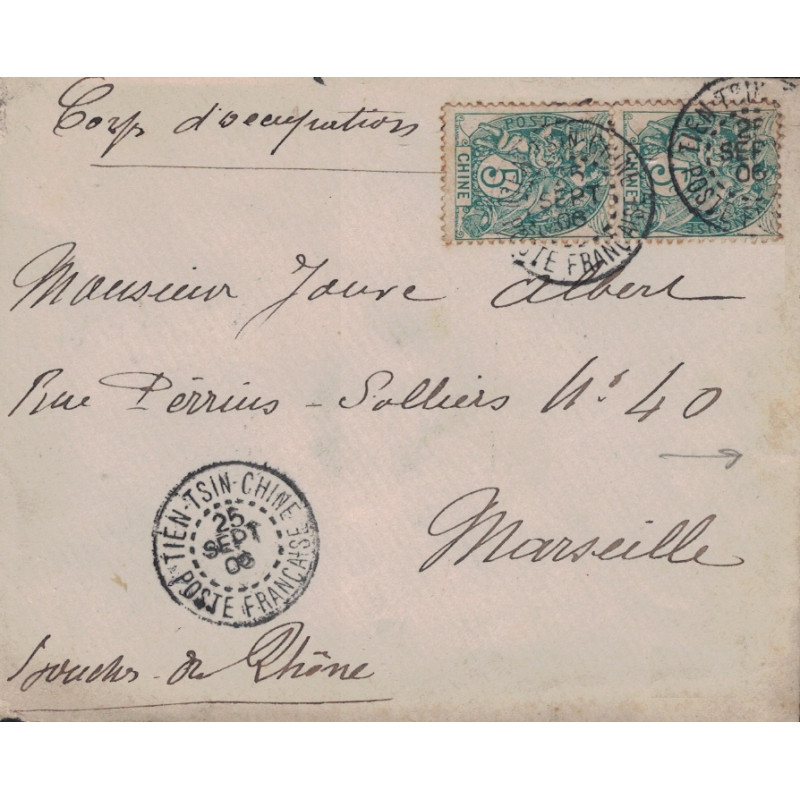 Corps d'occupation
POSTE
CHINE 5
CHINE 5
TIEN-TSIN-CHINE
25
SEPT
06
POSTE FRANÇAISE
Monsieur Jouve Albert
Rue Pérrins-Solliers Nº 40
Marseille
TIEN-TSIN-CHINE
25
SEPT
06
POSTE FRANÇAISE
Bouches-du-Rhône